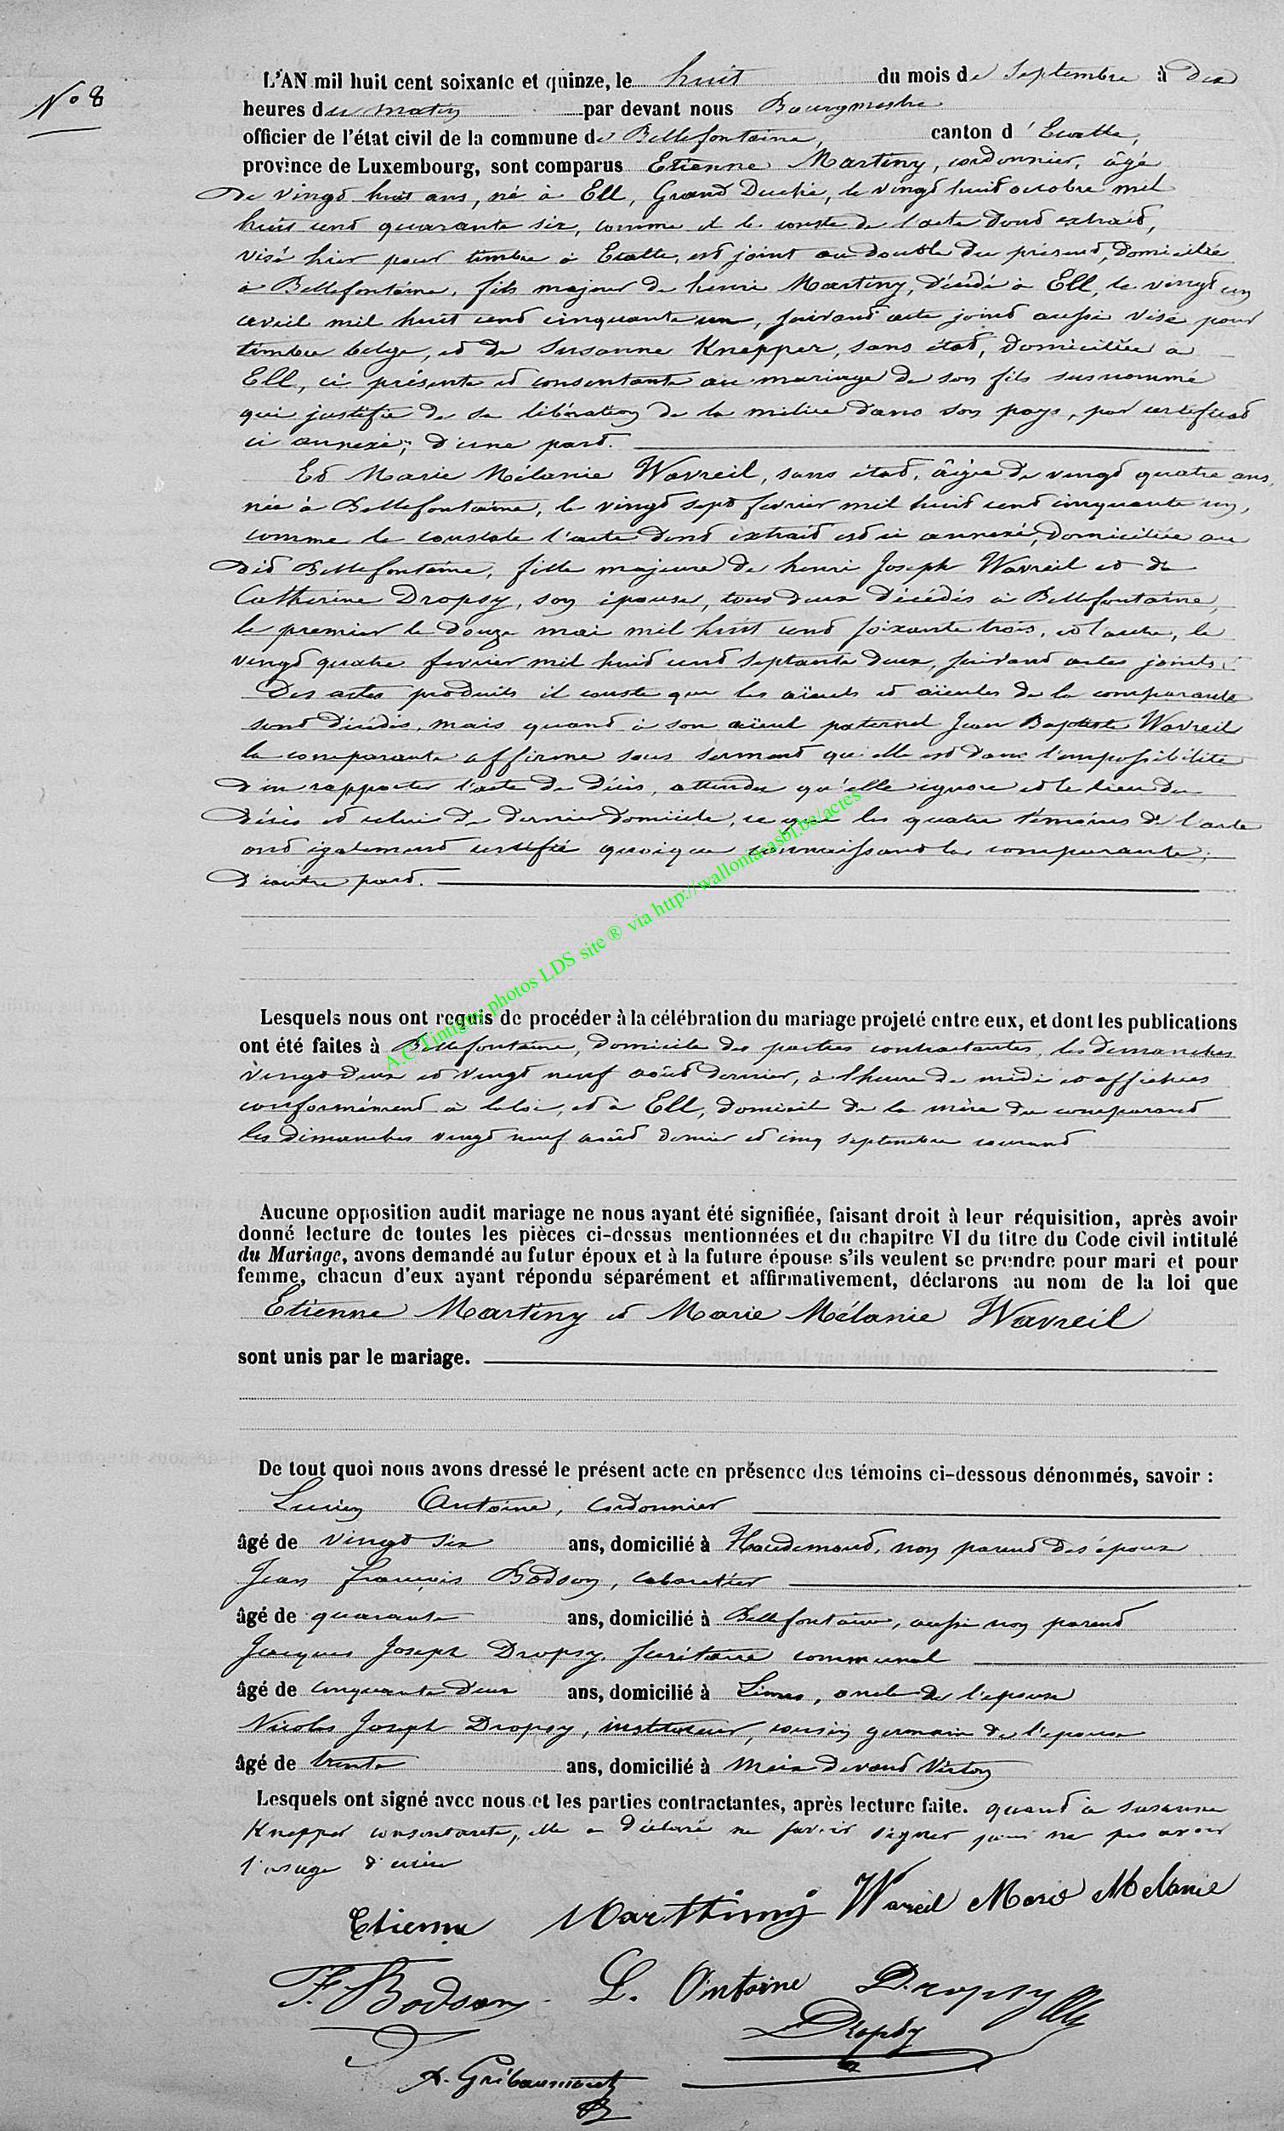 N° 8
L'AN mil huit cent soixante et quinze, le huit du mois de Septembre à dix
heures du matin par devant nous Bourgmestre
officier de l'état civil de la commune de Bellefontaine, canton d'Etalle,
province de Luxembourg, sont comparus Etienne Martiny, cordonnier, âgé
de vingt huit ans, né à Ell, Grand Duché, le vingt huit octobre mil
huit cent quarante six, comme il le conste de l'acte dont extrait,
visé hier pour timbre à Etalle, est joint au double du présent, domicilié
à Bellefontaine, fils majeur de henri Martiny, décédé à Ell, le vingt un
avril mil huit cent cinquante un, suivant acte joint aussi visé pour
timbre belge, et de Susanne Knepper, sans état, domiciliée à
Ell, ci présente et consentante au mariage de son fils susnommé
qui justifie de sa libération de la milice dans son pays, par certificat
ci annexé, d'une part.
Et Marie Mélanie Wavreil, sans état, âgée de vingt quatre ans,
née à Bellefontaine, le vingt sept fevrier mil huit cent cinquante un,
comme le constate l'acte dont extrait est ci annexé, domiciliée au
dit Bellefontaine, fille majeure de henri Joseph Wavreil et de
Catherine Dropsy, son épouse, tous deux décédés à Bellefontaine,
le premier le douze mai mil huit cent soixante trois, et l'autre, le
vingt quatre fevrier mil huit cent septante deux, suivant actes joints.
Des actes produits il conste que les aïeuls et aïeules de la comparante
sont décédés, mais quant à son aïeul paternel Jean Baptiste Wavreil
la comparante affirme sous serment qu'elle est dans l'impossibilité
d'en rapporter l'acte de décès, attendu qu'elle ignore et le lieu du
décès et celui de dernier domicile, ce que les quatre témoins de l'acte
ont également certifié quoique connaissant la comparante;
d'autre part.
A.C. Tintigny photos LDS site ® via http://walloniaasbl.be/actes
Lesquels nous ont requis de procéder à la célébration du mariage projeté entre eux, et dont les publications
ont été faites à Bellefontaine, domicile des parties contractantes, les dimanches
vingt deux et vingt neuf août dernier, à l'heure de midi et affichées
conformément à la loi, et à Ell, domicile de la mère du comparant
les dimanches vingt neuf août dernier et cinq septembre courant
Aucune opposition audit mariage ne nous ayant été signifiée, faisant droit à leur réquisition, après avoir
donné lecture de toutes les pièces ci-dessus mentionnées et du chapitre VI du titre du Code civil intitulé
du Mariage, avons demandé au futur époux et à la future épouse s'ils veulent se prendre pour mari et pour
femme, chacun d'eux ayant répondu séparément et affirmativement, déclarons au nom de la loi que
Etienne Martiny et Marie Mélanie Wavreil
sont unis par le mariage.
De tout quoi nous avons dressé le présent acte en présence des témoins ci-dessous dénommés, savoir :
Lucien Antoine, Cordonnier
âgé de vingt six ans, domicilié à Houdemont, non parent des époux
Jean françois Bodson, cabaretier
âgé de quarante ans, domicilié à Bellefontaine, aussi non parent
Jacques Joseph Dropsy, secrétaire communal
âgé de cinquante deux ans, domicilié à Limes, oncle de l'épouse
Nicolas Joseph Dropsy, instituteur, cousin germain de l'épouse
âgé de trente ans, domicilié à Meix devant Virton
Lesquels ont signé avec nous et les parties contractantes, après lecture faite. quant à Susanne
Knepper consentante, elle a déclaré ne savoir signer pour ne pas avoir
l'usage d'écrire
Etienne Marthiny Wavreil Marie Melanie
F. Bodson L. Antoine Dropsy
Dropsy
A. Gribaumont